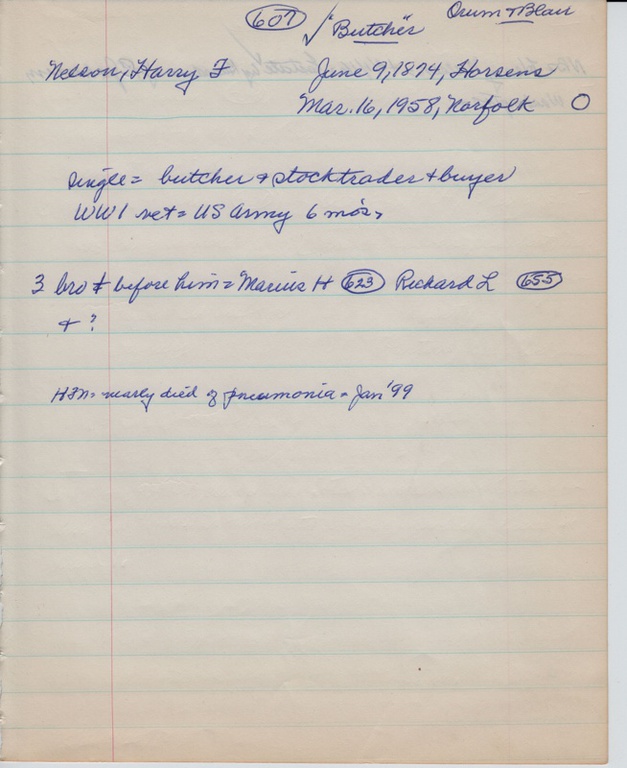 607 ✓ "Butcher" Orum + Blair
Nelson, Harry F June 9, 1874, Horsens
Mar. 16, 1958, Norfolk O
single = butcher + stocktrader + buyer
WW1 vet = US Army 6 mo's.
3 bro ‡ before him = Marius H 623 Richard L 655
+ ?
HFN = nearly died of pneumonia = Jan '99